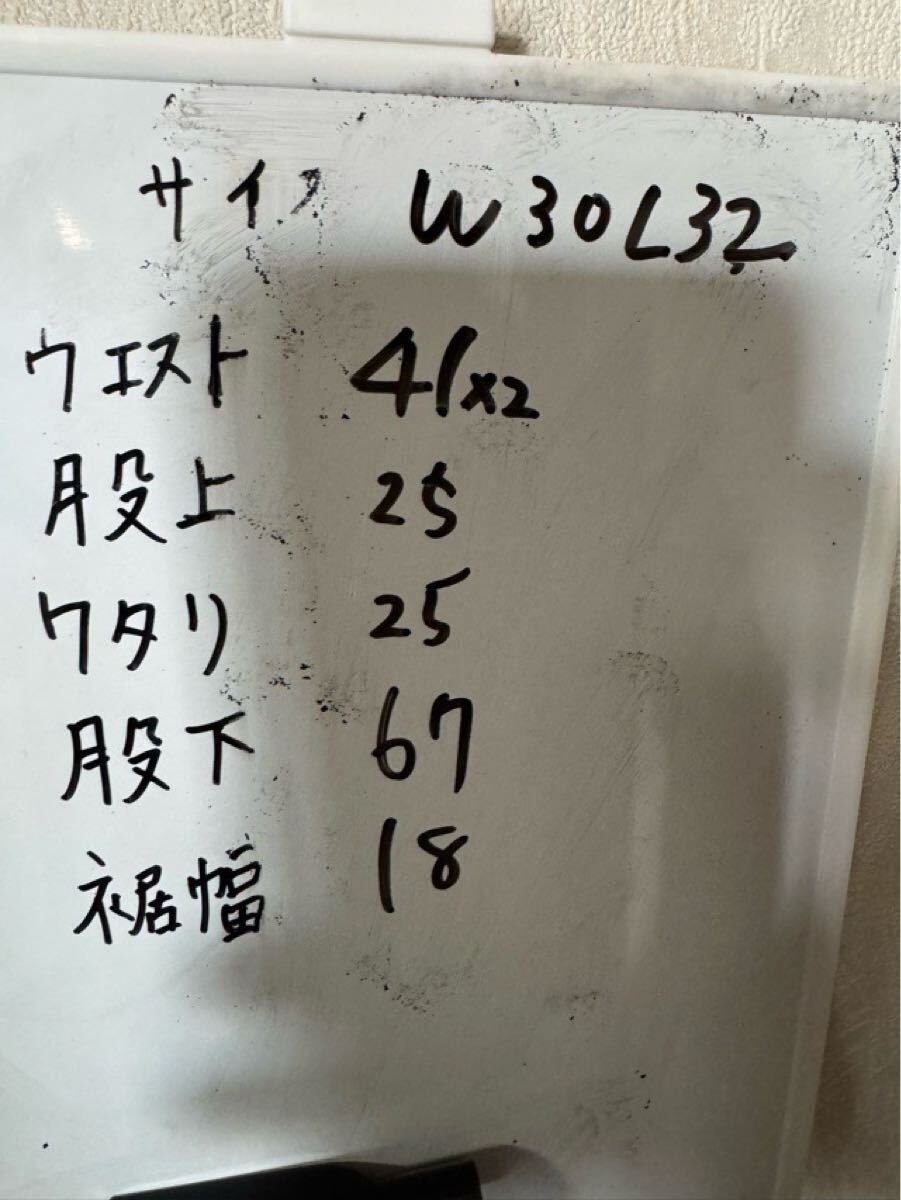 サイズ W30L32
ウエスト 41x2
股上 25
ワタリ 25
股下 67
裾幅 18